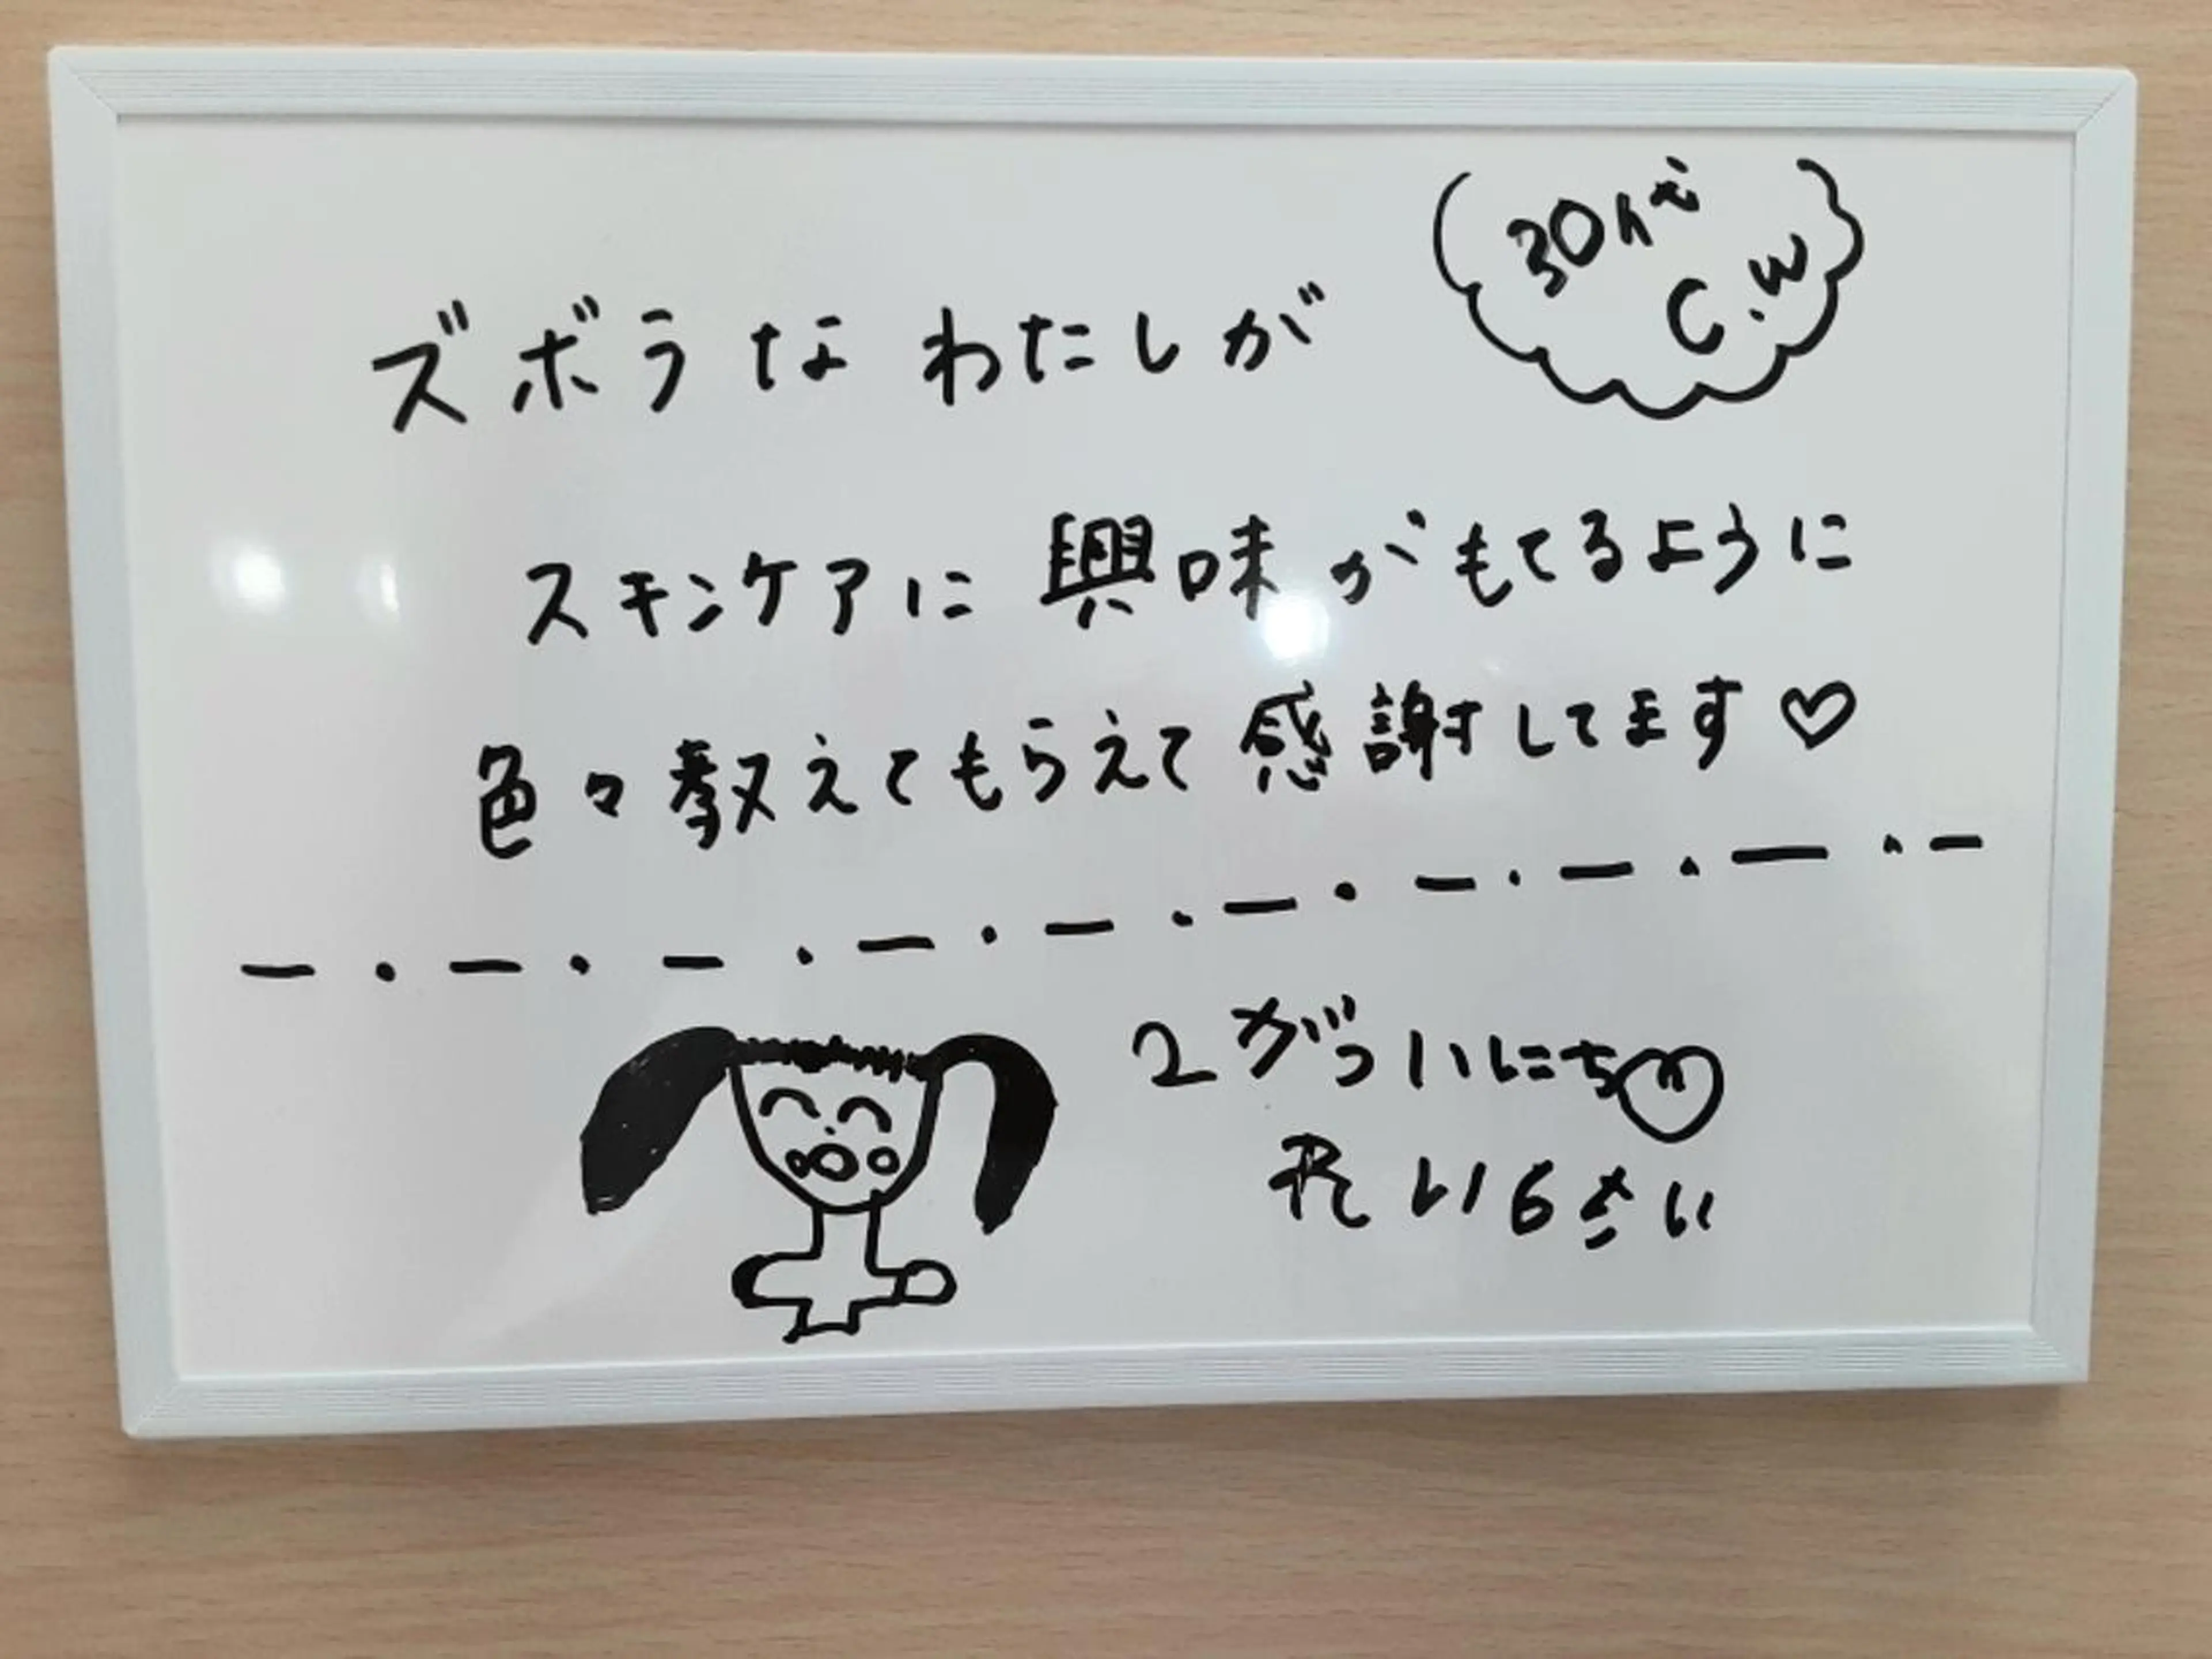 30代
C.W
ズボラなわたしが
スキンケアに興味がもてるように
色々教えてもらえて感謝してます♡
2がついにち♡
いらさい